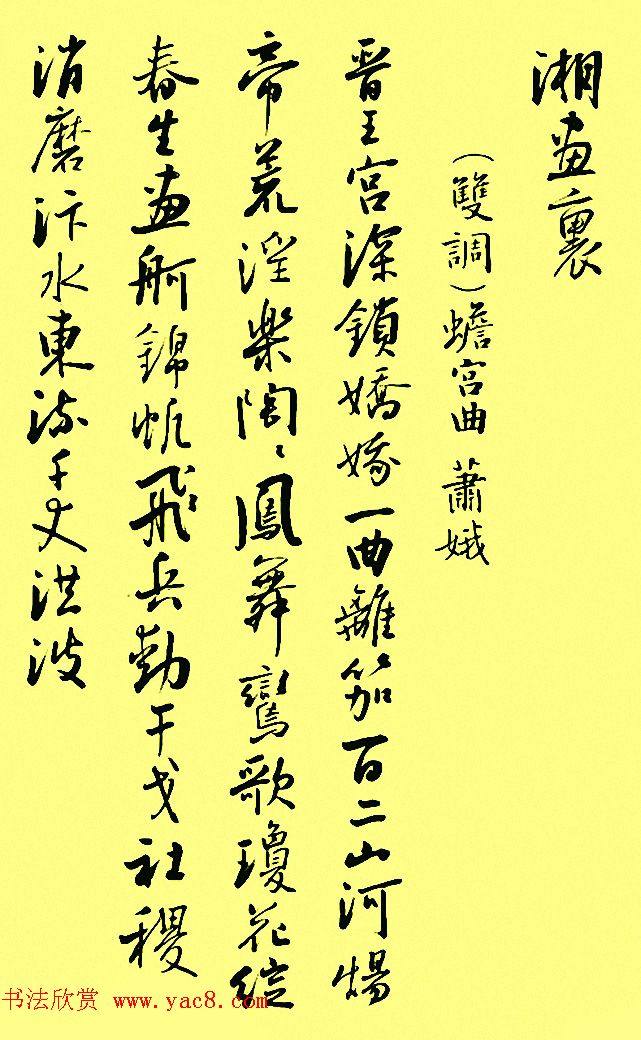 湘畫裏
（雙調）蟾宮曲 蕭娥
晉王宮深鎖嬌娥一曲離笳百二山河煬
帝荒淫樂陶々鳳舞鸞歌瓊花綻
春生畫舸錦帆飛兵動干戈社稷
消磨汴水東流千丈洪波
书法欣赏 www.yac8.com